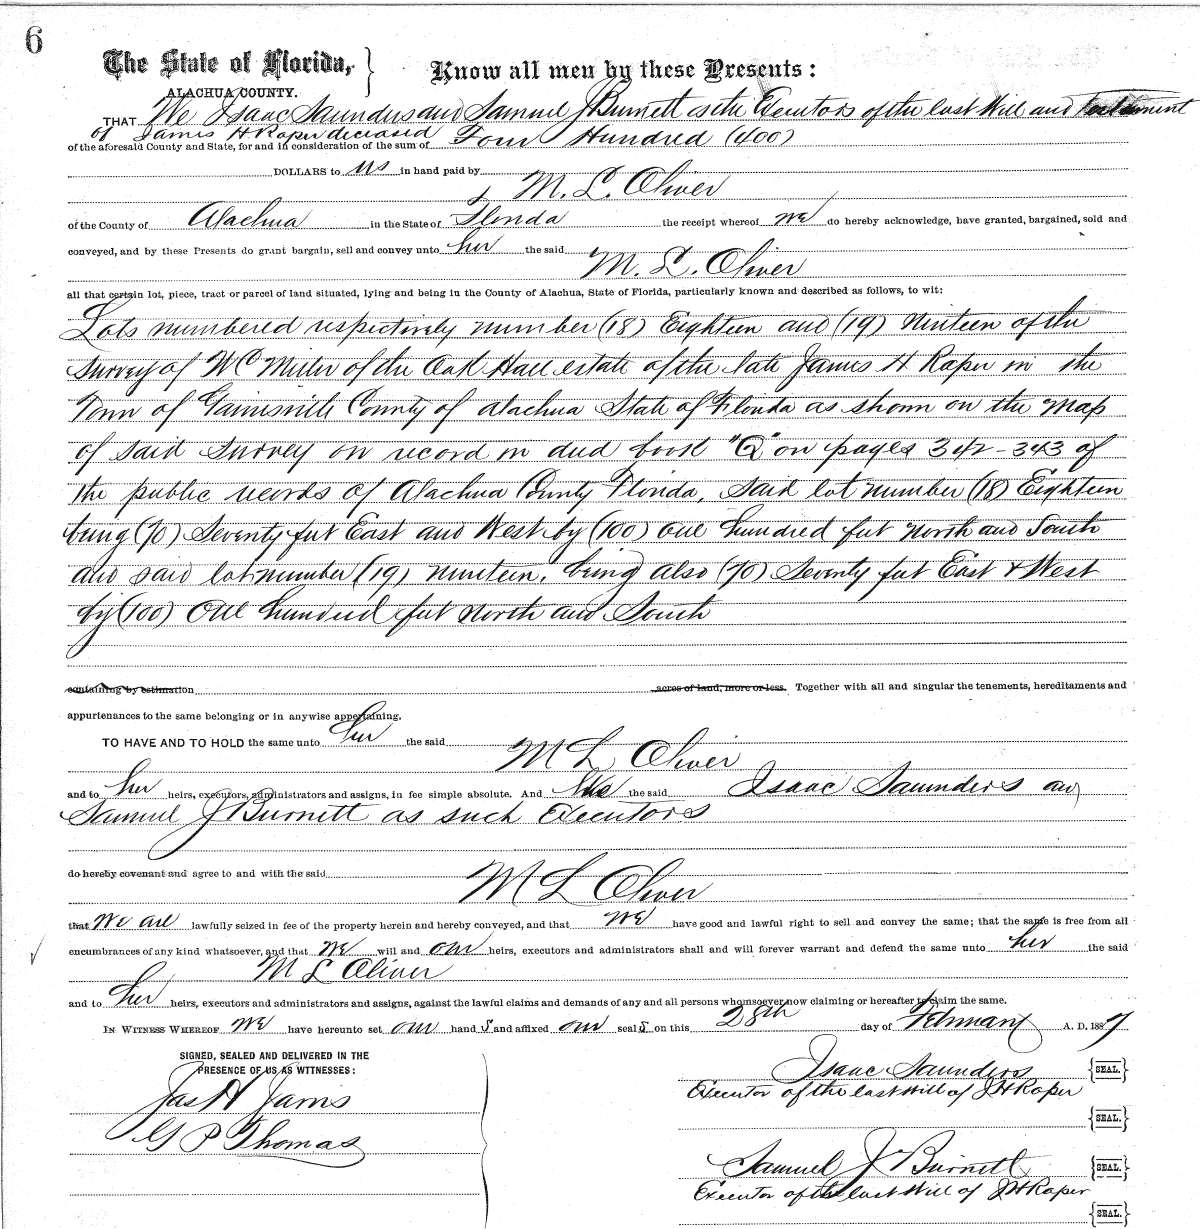 6
The State of Florida, } Know all men by these Presents:
ALACHUA COUNTY.
THAT We Isaac Saunders and Samuel J Burnett as the Executors of the last Will and Testament
of James H Roper deceased
of the aforesaid County and State, for and in consideration of the sum of Four Hundred (400)
DOLLARS to us in hand paid by
M. L. Oliver
of the County of Alachua in the State of Florida the receipt whereof we do hereby acknowledge, have granted, bargained, sold and
conveyed, and by these Presents do grant bargain, sell and convey unto her the said
M. L. Oliver
all that certain lot, piece, tract or parcel of land situated, lying and being in the County of Alachua, State of Florida, particularly known and described as follows, to wit:
Lots numbered respectively number (18) Eighteen and (19) Nineteen of the
Survey of W C Miller of the Oak Hall estate of the late James H Roper in the
Town of Gainesville County of Alachua State of Florida as shown on the Map
of said Survey on record in deed book "Q" on pages 342-343 of
the public records of Alachua County Florida, Said lot number (18) Eighteen
being (70) Seventy feet East and West by (100) one hundred feet North and South
and said lot number (19) nineteen, being also (70) Seventy feet East & West
by (100) One hundred feet North and South
containing by estimation acres of land, more or less. Together with all and singular the tenements, hereditaments and
appurtenances to the same belonging or in anywise appertaining.
TO HAVE AND TO HOLD the same unto her the said
M L Oliver
and to her heirs, executors, administrators and assigns, in fee simple absolute. And We the said Isaac Saunders and
Samuel J Burnett as such Executors
do hereby covenant and agree to and with the said
M L Oliver
that We are lawfully seized in fee of the property herein and hereby conveyed, and that we have good and lawful right to sell and convey the same; that the same is free from all
encumbrances of any kind whatsoever, and that we will and our heirs, executors and administrators shall and will forever warrant and defend the same unto her the said
M L Oliver
and to her heirs, executors and administrators and assigns, against the lawful claims and demands of any and all persons whomsoever now claiming or hereafter to claim the same.
IN WITNESS WHEREOF we have hereunto set our hand s and affixed our seal s on this 28th day of February A. D. 1887
SIGNED, SEALED AND DELIVERED IN THE
PRESENCE OF US AS WITNESSES:
Isaac Saunders {SEAL.}
Executor of the last Will of J H Roper
Jas H
{SEAL.}
G P Thomas
Samuel J Burnett {SEAL.}
Executor of the last Will of J H Roper
{SEAL.}